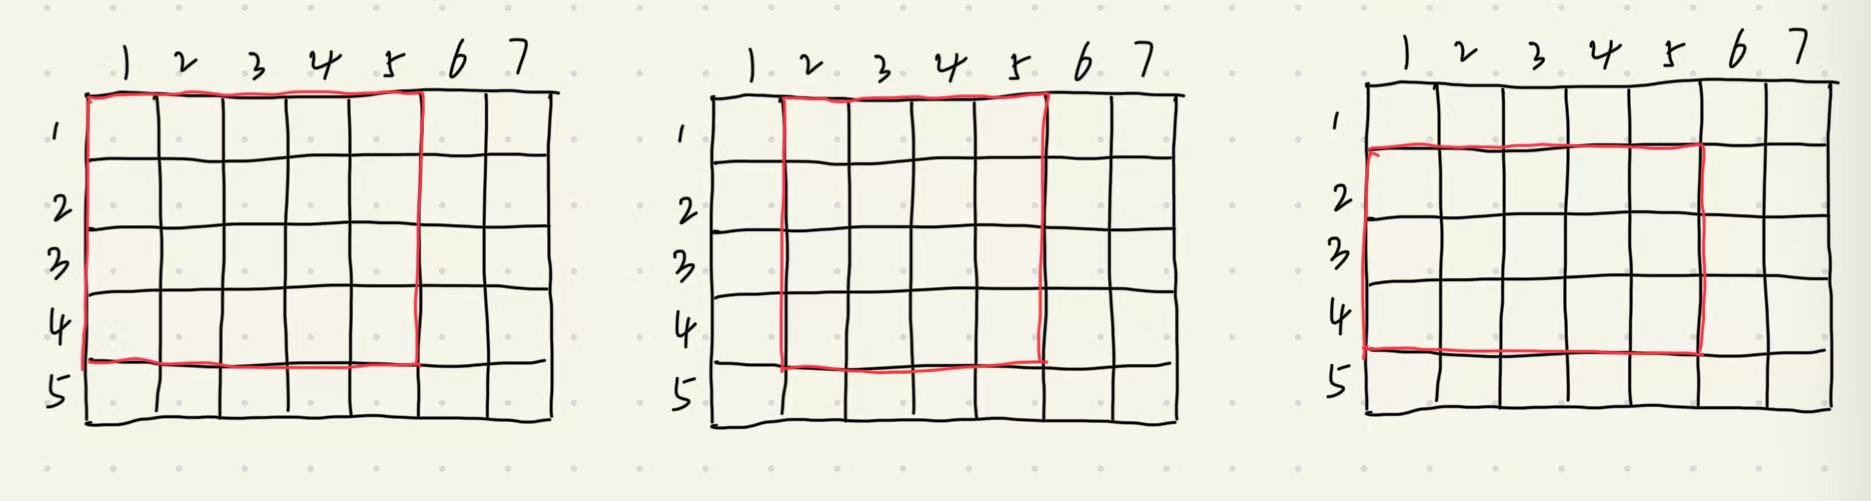 1 2 3 4 5 6 7
1
2
3
4
5
1 2 3 4 5 6 7
1
2
3
4
5
1 2 3 4 5 6 7
1
2
3
4
5